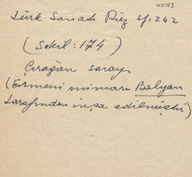 W2153
Türk Sanatı Pirz sf: 242
(Şekil: 174)
Çırağan sarayı
(Ermeni mimarı Balyan
tarafından inşa edilmiştir)